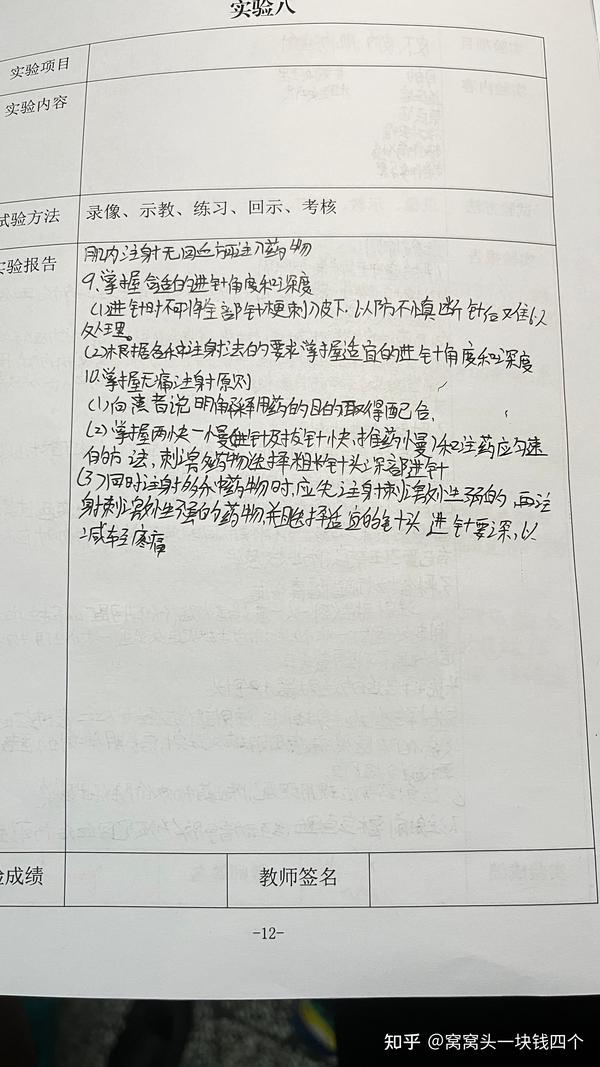 实验八
实验项目
实验内容
试验方法
录像、示教、练习、回示、考核
实验报告
肌内注射无回血方可注入药物
9.掌握合适的进针角度和深度
(1)进针时不可将全部针梗刺入皮下,以防不慎断针后又难以
处理。
(2)根据各种注射法的要求掌握适宜的进针角度和深度
10.掌握无痛注射原则
(1)向患者说明解释用药的目的取得配合.
(2)掌握两快一慢(进针及拔针快,推药慢)和注药应匀速
的方法,刺激药物选择粗长针头深部进针
(3)同时注射多种药物时,应先注射刺激性弱的,再注
射刺激性强的药物,并且选择适宜的针头 进针要深,以
减轻疼痛
验成绩
教师签名
-12-
知乎 @窝窝头一块钱四个